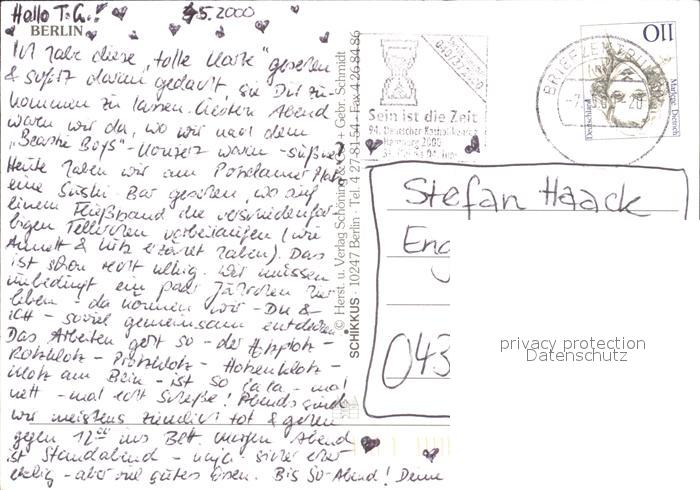 Hallo T.G.! 4.5.2000
BERLIN
Ich habe diese "tolle Karte" gesehen
& sofort daran gedacht, sie Dir zu-
kommen zu lassen. Gestern Abend
waren wir da, wo wir nach dem
"Beastie Boys"-Konzert waren - süß, ne?
Heute haben wir am Potsdamer Platz
eine Sushi-Bar gesehen, wo auf
einem Fließband die verschiedenfar-
bigen Tellerchen vorbeifahren (wie
Annett & Lutz erzählt haben). Das
ist schon echt ulkig. Wir müssen
unbedingt ein paar Jährchen hier
leben - da können wir - Du &
ich - soviel gemeinsam entdecken.
Das Arbeiten geht so - der
Rotzklotz - Protzklotz -
Klotz am Bein - ist so lala - mal
nett - mal echt Scheiße! Abends sind
wir meistens ziemlich tot & gehen
gegen 12⁰⁰ ins Bett. Morgen Abend
ist Standabend - naja - sicher eher
eklig - aber viel gutes Essen. Bis So-Abend! Deine
© Herst. u. Verlag Schöning & Co. + Gebr. Schmidt
SCHIKKUS · 10247 Berlin · Tel. 4 27 81 54 - Fax 4 26 84 86
Sein ist die Zeit
94. Deutscher Katholikentag
Hamburg 2000
BRIEFZENTRUM
110
Deutschland
Marlene Dietrich
Stefan Haack
Eng
043
privacy protection
Datenschutz